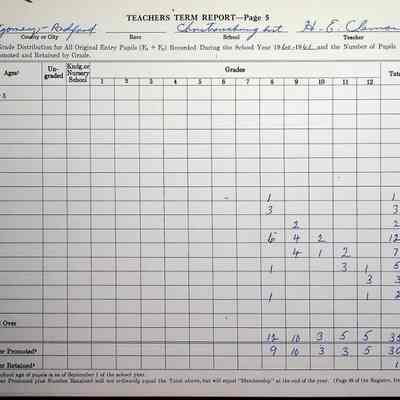 TEACHERS TERM REPORT—Page 5
Radford Christiansburg Inst H. E.
County or City Race School Teacher
Grade Distribution for All Original Entry Pupils (E₁ + E₂) Recorded During the School Year 1960-1961 and the Number of Pupils
omoted and Retained by Grade.
Ages¹ Un-graded Kndg. or Nursery School Grades Tota
1 2 3 4 5 6 7 8 9 10 11 12
1 1
3 3
2 2
6 4 2 12
4 1 2 7
1 3 1 5
3 3
1 1 2
Over
12 10 3 5 5 35
er Promoted² 9 10 3 3 5 30
er Retained² 1
chool age of pupils is as of September 1 of the school year.
er Promoted plus Number Retained will not ordinarily equal the Total above, but will equal "Membership" at the end of the year.